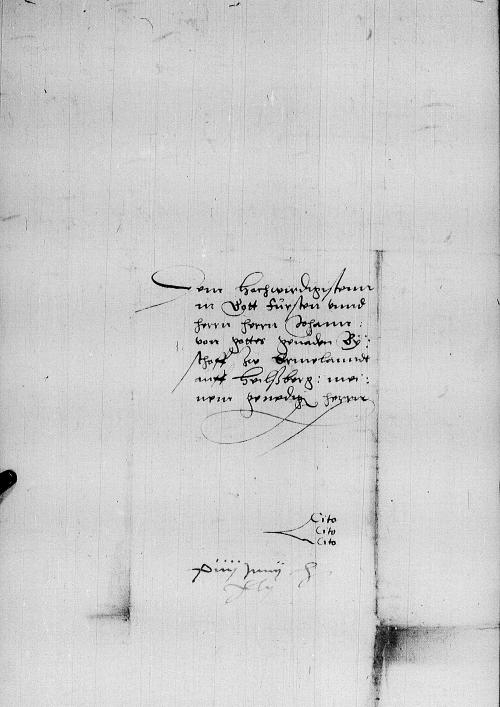 Dem Hochwirdigistenn
in Gott Fürsten vnnd
herrn herrn Johann:
von gottes genaden By:
schoff zw Ermelanndt
auff Heilsberg: mei:
nem genedig herrn
Cito
Cito
Cito
xiiij Junij
xlj